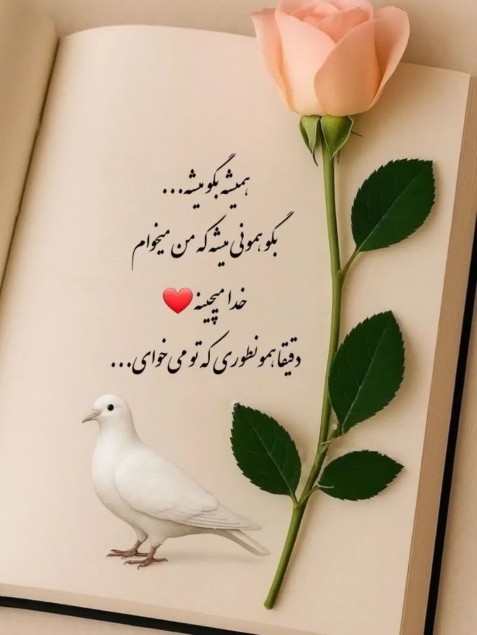 همیشه بگو میشه...
بگو همونی میشه که من میخوام
خدا میچینه❤️
دقیقا همونطوری که تو می خوای...